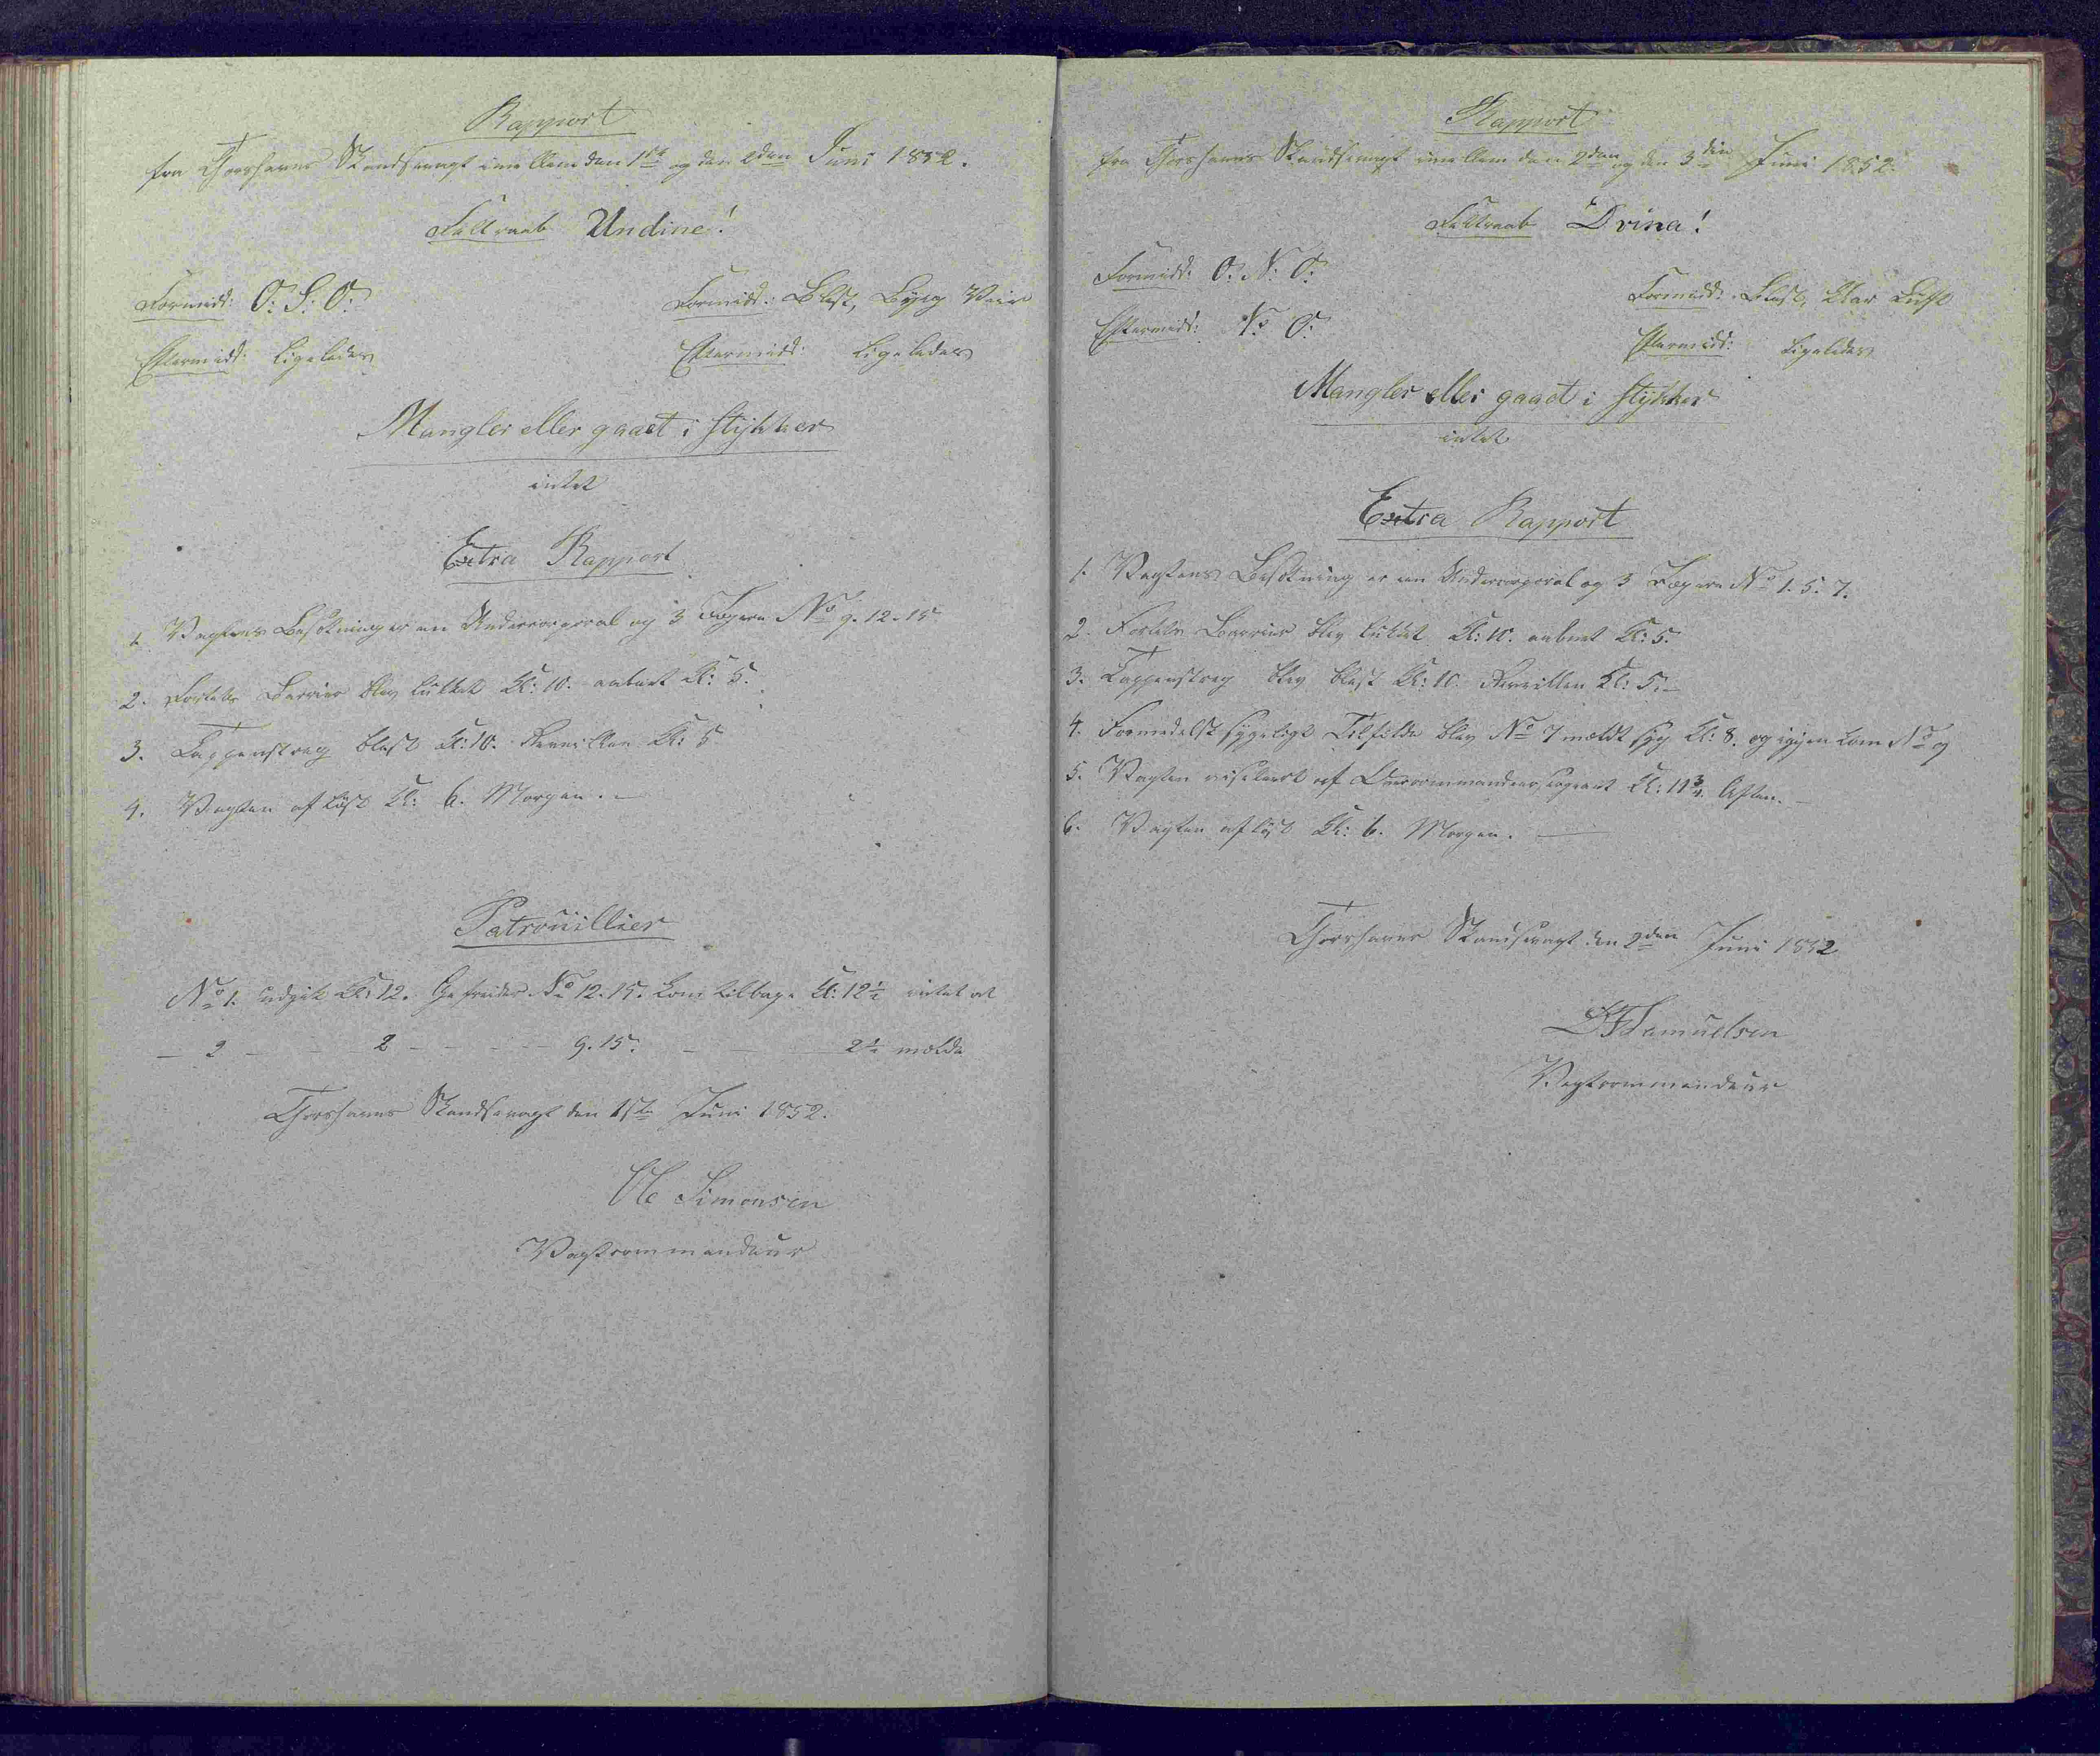 Rapport
fra Thorshavns Skandsevagt imellem den 1ste og den 2den Juni 1852.
Feltraab Undine!
Formidd: O: S: O:
Formidd: Blæst, Byig Veir
Eftermidd: Ligeledes
Eftermidd: Ligeledes
Mangler eller gaaet i Stykker
intet
Extra Rapport
1. Vagtens Besætning er en Undercorporal og 3 Jægere No 9. 12. 15.
2. Fortets Barriere blev lukket Kl: 10. aabnet Kl: 5.
3. Tappenstreg blæst Kl: 10. Revellien Kl: 5
4. Vagten afløst Kl: 6. Morgen. -
Patrouillier
No 1. udgik Kl: 12. Gefreider No 12. 15. kom tilbage Kl: 12½ intet at
- 2 - - - 2 - - - - - 9. 15. - - - 2½ melde
Thorshavns Skandsevagt den 1ste Juni 1852.
Ole Simonsen
Vagtcommandeur
Rapport
fra Thorshavns Skandsevagt imellem den 2den og den 3die Juni 1852.
Feltraab Dvina!
Formidd: O: N: O:
Formidd: Blæst, klar Luft
Eftermidd: N: O:
Eftermidd: Ligeledes
Mangler eller gaaet i Stykker
intet
Extra Rapport
1. Vagtens Besætning er een Undercorporal og 3 Jægere No 1. 5. 7.
2. Fortets Barriere blev lukket Kl: 10. aabnet Kl: 5.
3. Tappenstreg blev blæst Kl: 10. Revellien Kl: 5. -
4. Formedelst sygeligt Tilfælde blev No 7 meldt syg Kl: 8. og igjen kom No 9
5. Vagten visiteret af Overcommandeersergeant Kl: 11¾ Aften. -
6. Vagten afløst Kl: 6. Morgen. -
Thorshavns Skandsevagt den 2den Juni 1852
Samuelsen
Vagtcommandeur